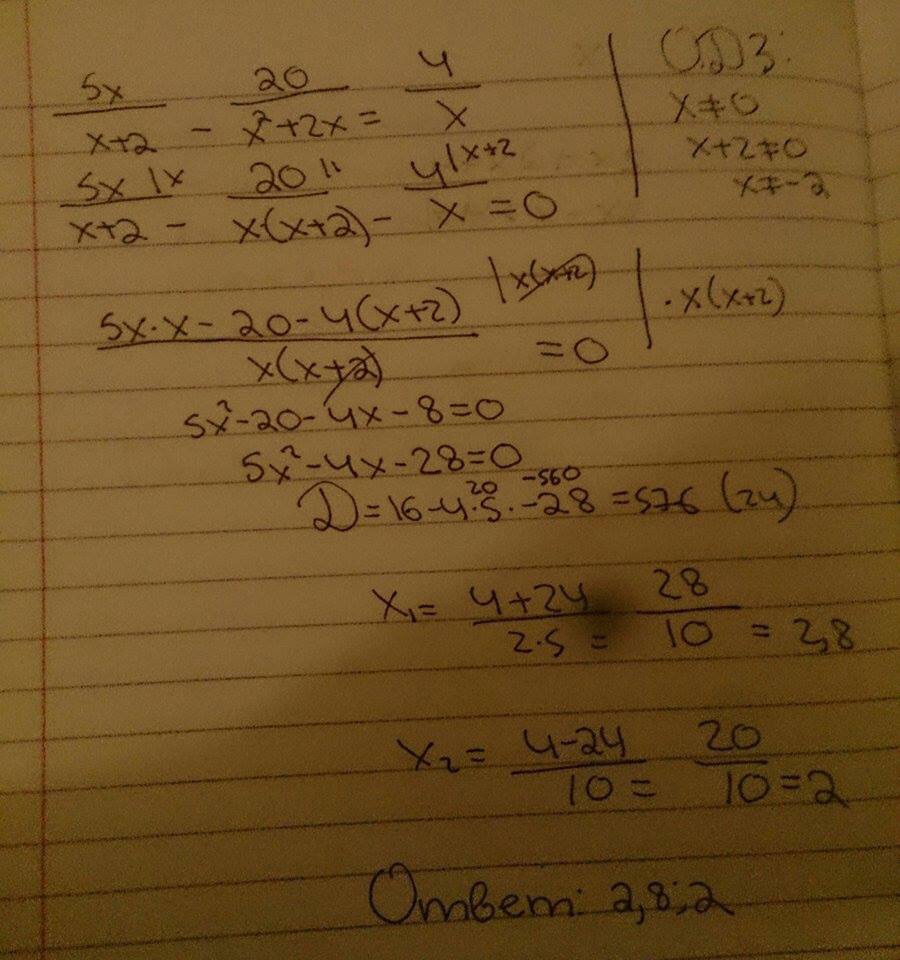 5x/(x+2) - 20/(x²+2x) = 4/x
О.Д.З:
x≠0
x+2≠0
x≠-2
5x|x/(x+2) - 20|1/(x(x+2)) - 4|x+2/x = 0
(5x·x-20-4(x+2))/(x(x+2)) |x(x+2) = 0 | ·x(x+2)
5x²-20-4x-8=0
5x²-4x-28=0
20 -560
D=16-4·5·-28=576 (24)
x₁= (4+24)/(2·5) = 28/10 = 2,8
x₂= (4-24)/10 = 20/10 =2
Ответ: 2,8;2